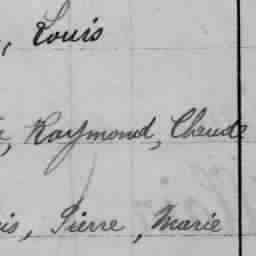 , Louis
, Raymond, Claude
is, Pierre, Marie